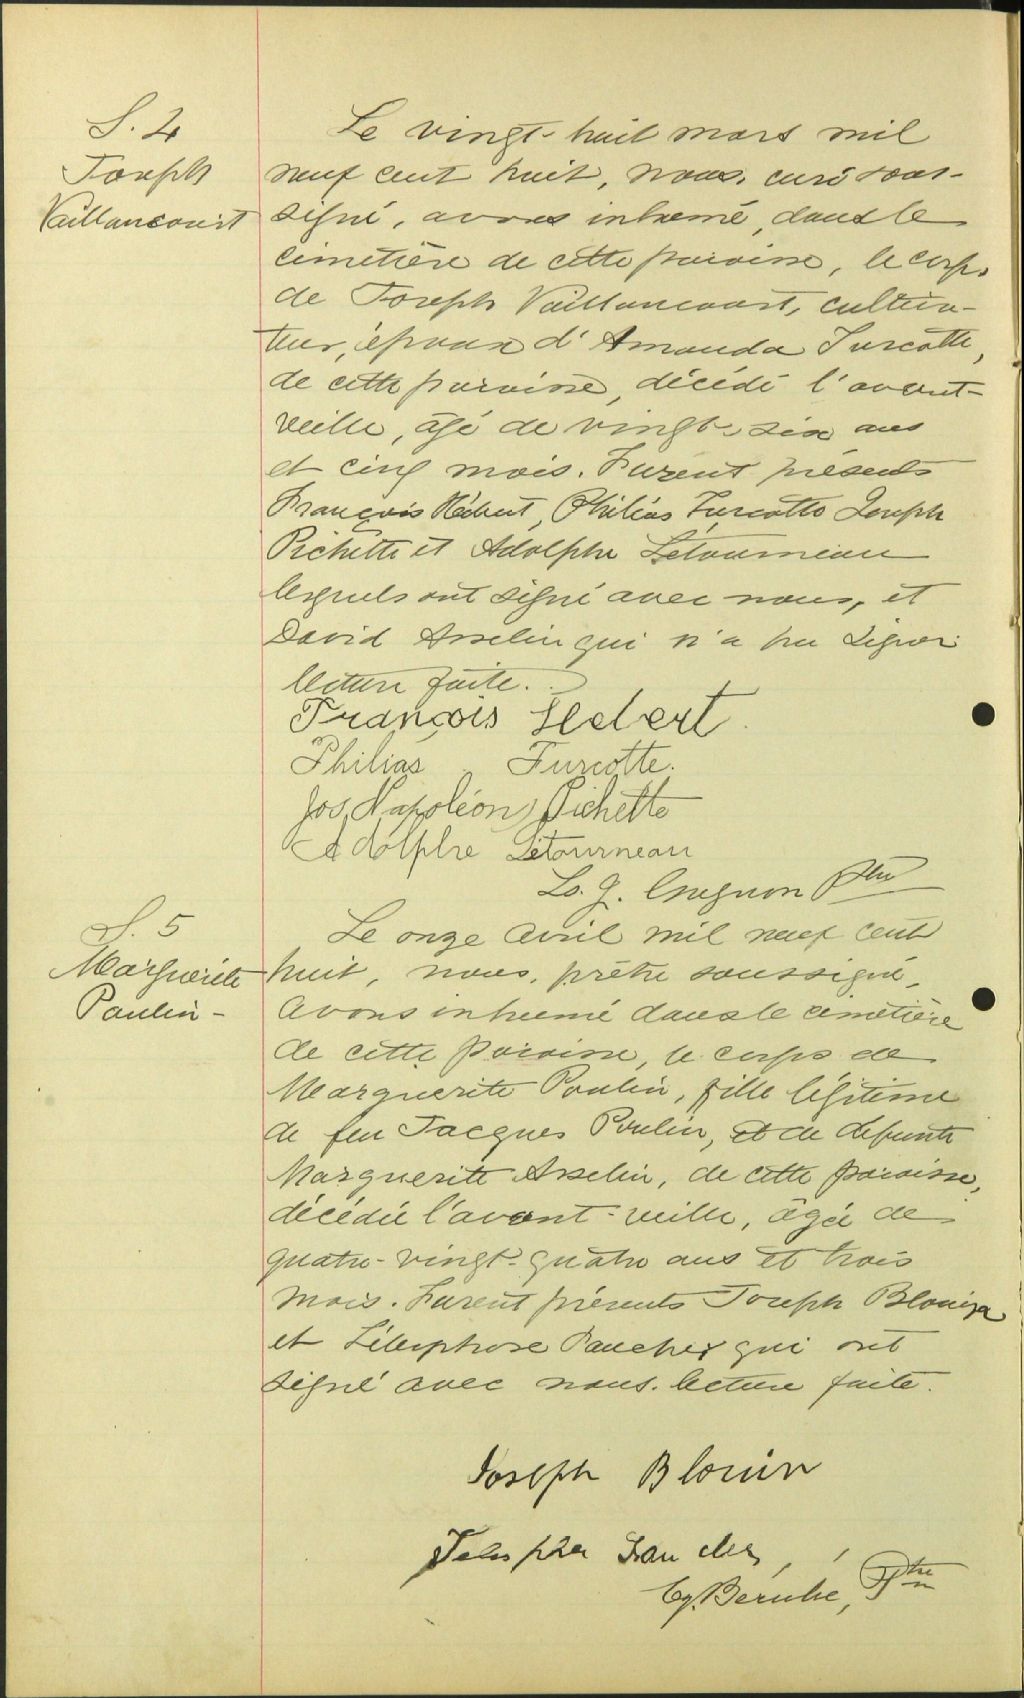 S. 4
Joseph
Vaillancourt
Le vingt-huit mars mil
neuf cent huit, nous, curé sous-
signé, avons inhumé, dans le
cimetière de cette paroisse, le corps
de Joseph Vaillancourt, cultiva-
teur, époux d'Amanda Turcotte,
de cette paroisse, décédé l'avant-
veille, âgé de vingt-six ans
et cinq mois. Furent présents
François Hébert, Philias Turcotte Joseph
Pichette et Adolphe Letourneau
lesquels ont signé avec nous, et
David Asselin qui n'a pu signer
lecture faite.
François Hebert
Philias Turcotte.
Jos. Napoléon Pichette
Adolphe Letourneau
Ls. J. Ptre
S. 5
Marguerite
Paulin -
Le onze Avril mil neuf cent
huit, nous, prêtre soussigné,
avons inhumé dans le cimetière
de cette paroisse, le corps de
Marguerite Poulin, fille légitime
de feu Jacques Poulin, et de defunte
Marguerite Asselin, de cette paroisse,
décédée l'avant-veille, âgée de
quatre-vingt-quatre ans et trois
mois. Furent présents Joseph Blouin
et Télesphore qui ont
signé avec nous. lecture faite.
Joseph Blouin
Bérubé, Ptre